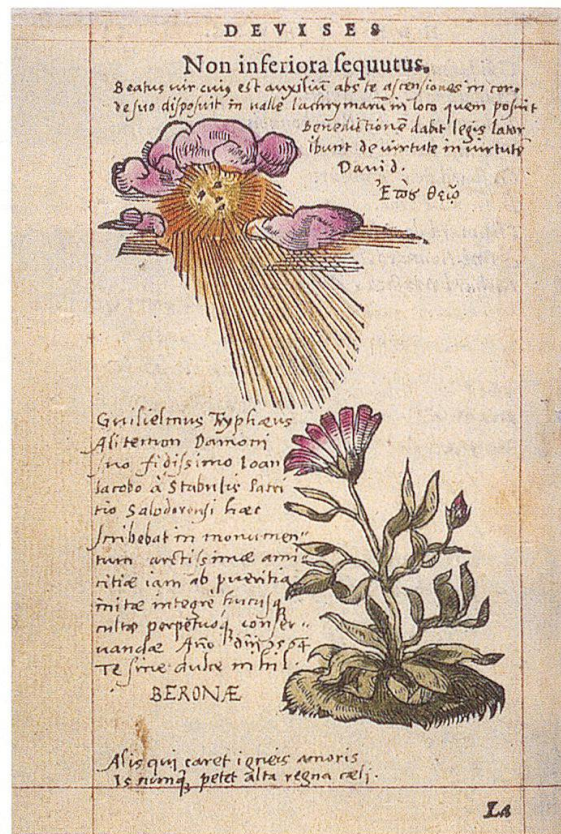 DEVISES
Non inferiora sequutus.
Beatus vir cuiꝰ est auxiliū abs te ascensiones in cor⸗
de suo disposuit in valle lachrymarū in loco quem posuit
Benedictionē dabit legis lator
ibunt de virtute in virtutē
David.
Guilielmus Tryphæus
Alitemon Damoni
suo fidissimo Ioan
Iacobo à Stabulis Patri
tio Salodorensi hæc
scribebat in monumen⸗
tum arctissimæ ami⸗
citiæ iam ab pueritia
initæ integre hucusq
cultæ perpetuoq conser⸗
uandæ Año dñi 1564
Te sine dulce nihil.
BERONÆ
Alis qui caret igneis amoris
Is numq petet alta regna cæli.
La